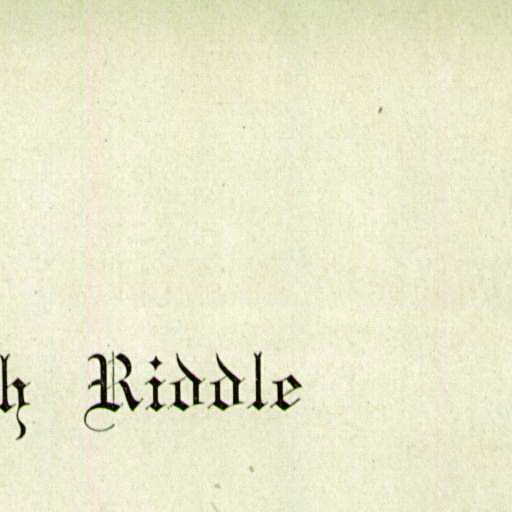 h Riddle